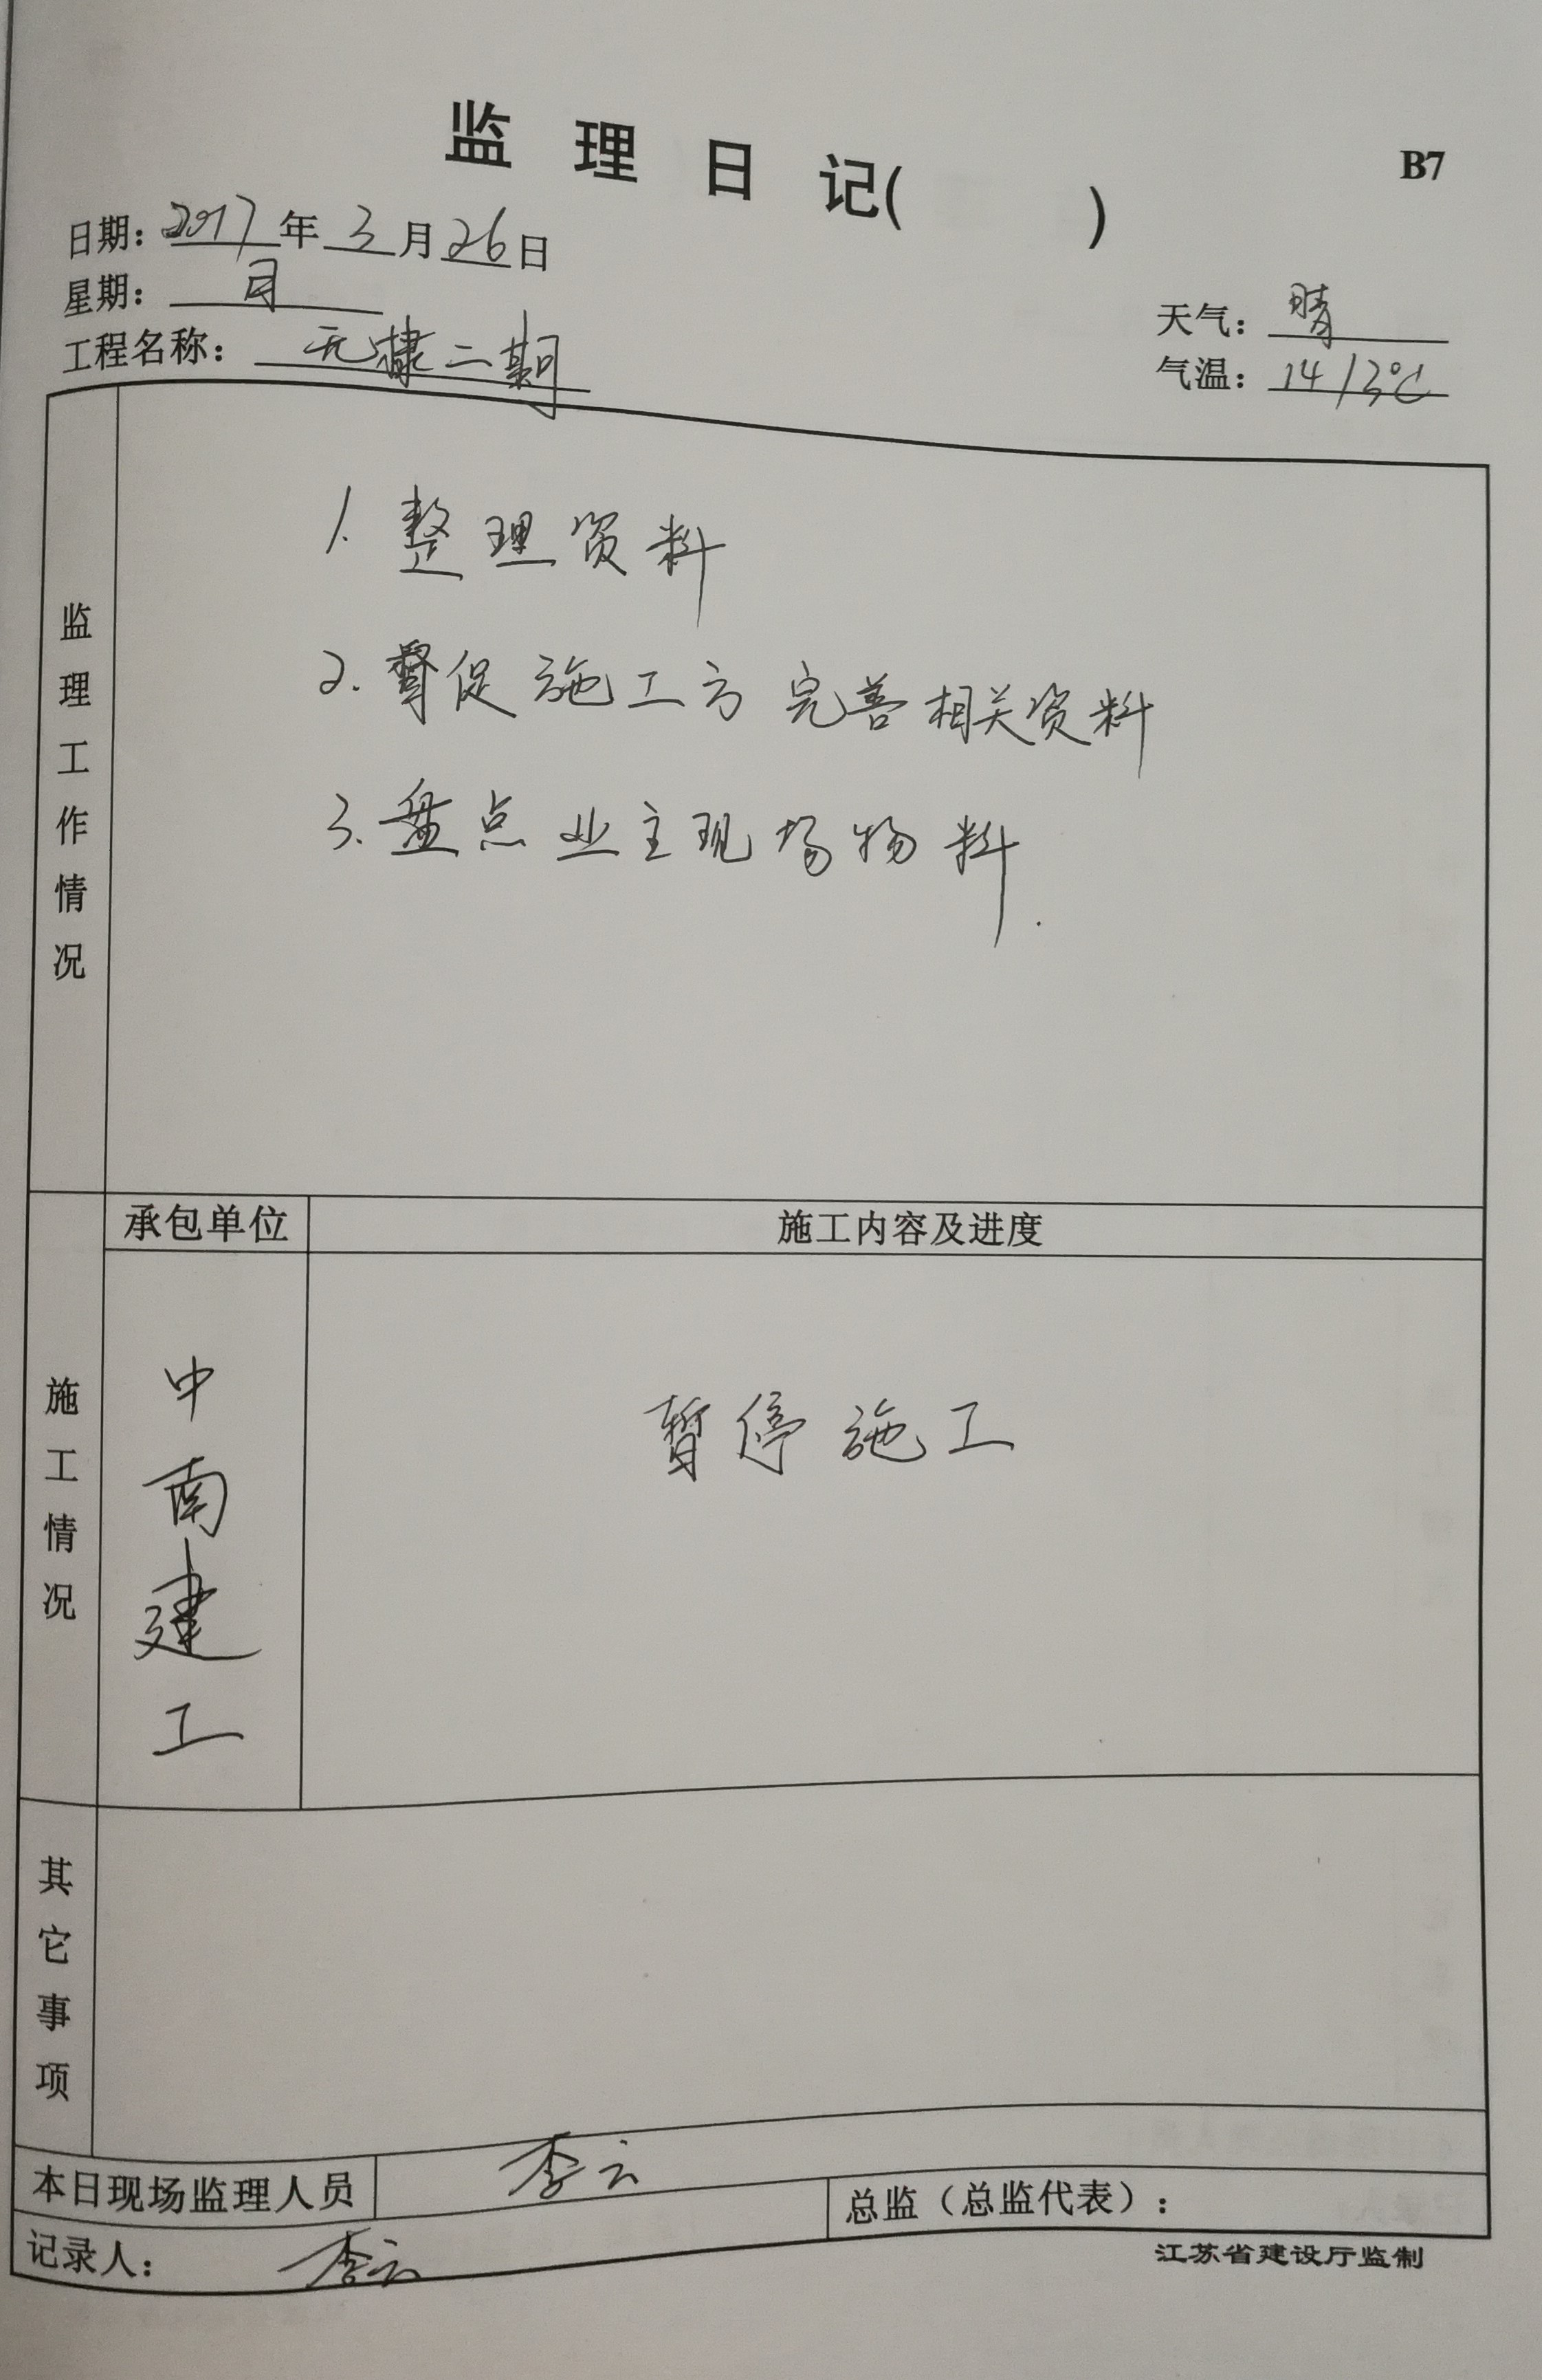 监理日记(    )
B7
日期：2017年3月26日
星期：日
天气：晴
工程名称：无棣二期
气温：14/3℃
监理工作情况
1.整理资料
2.督促施工方完善相关资料
3.盘点业主现场物料.
承包单位
施工内容及进度
施工情况
中南建工
暂停施工
其它事项
本日现场监理人员
李云
总监（总监代表）：
记录人：李云
江苏省建设厅监制